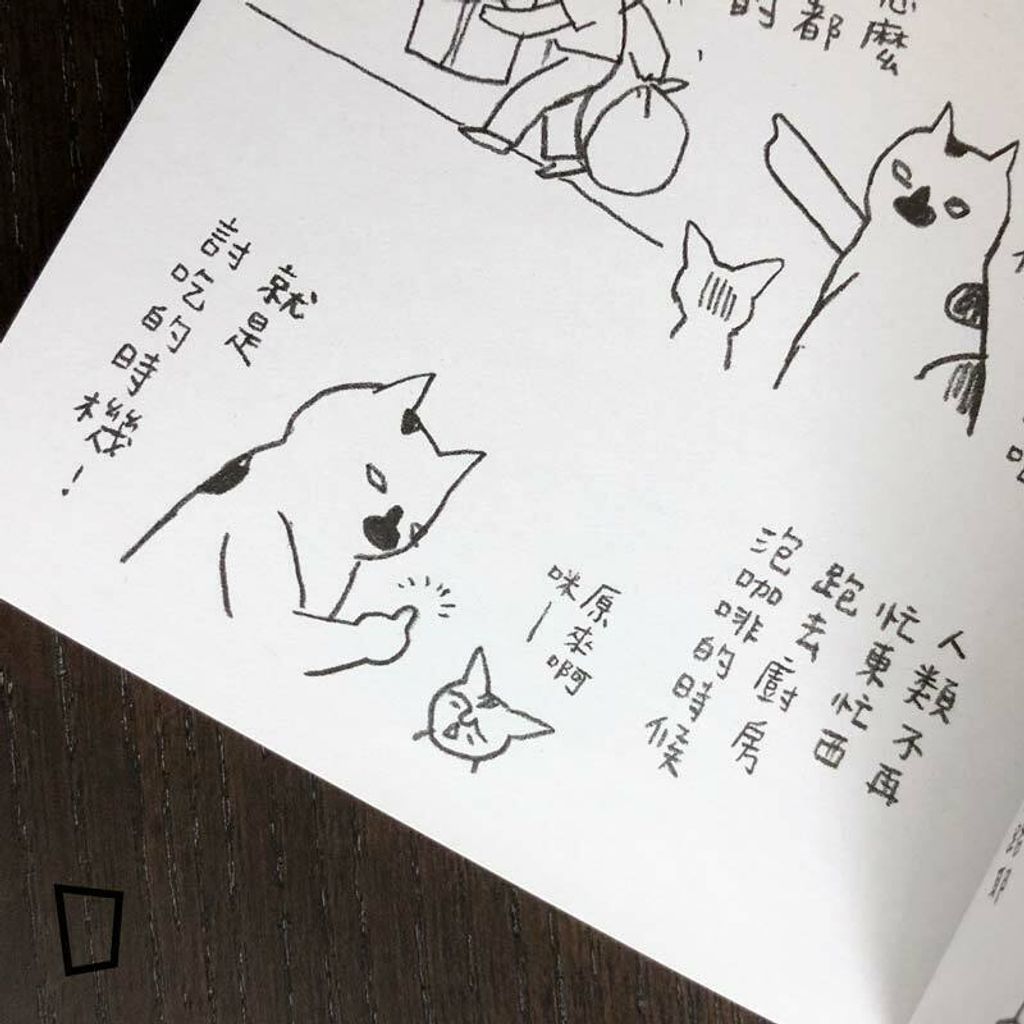 麼
都
的
人類不再
忙東忙西
跑去廚房
泡咖啡的時候
原來啊
咪—
就是
討吃的時機！